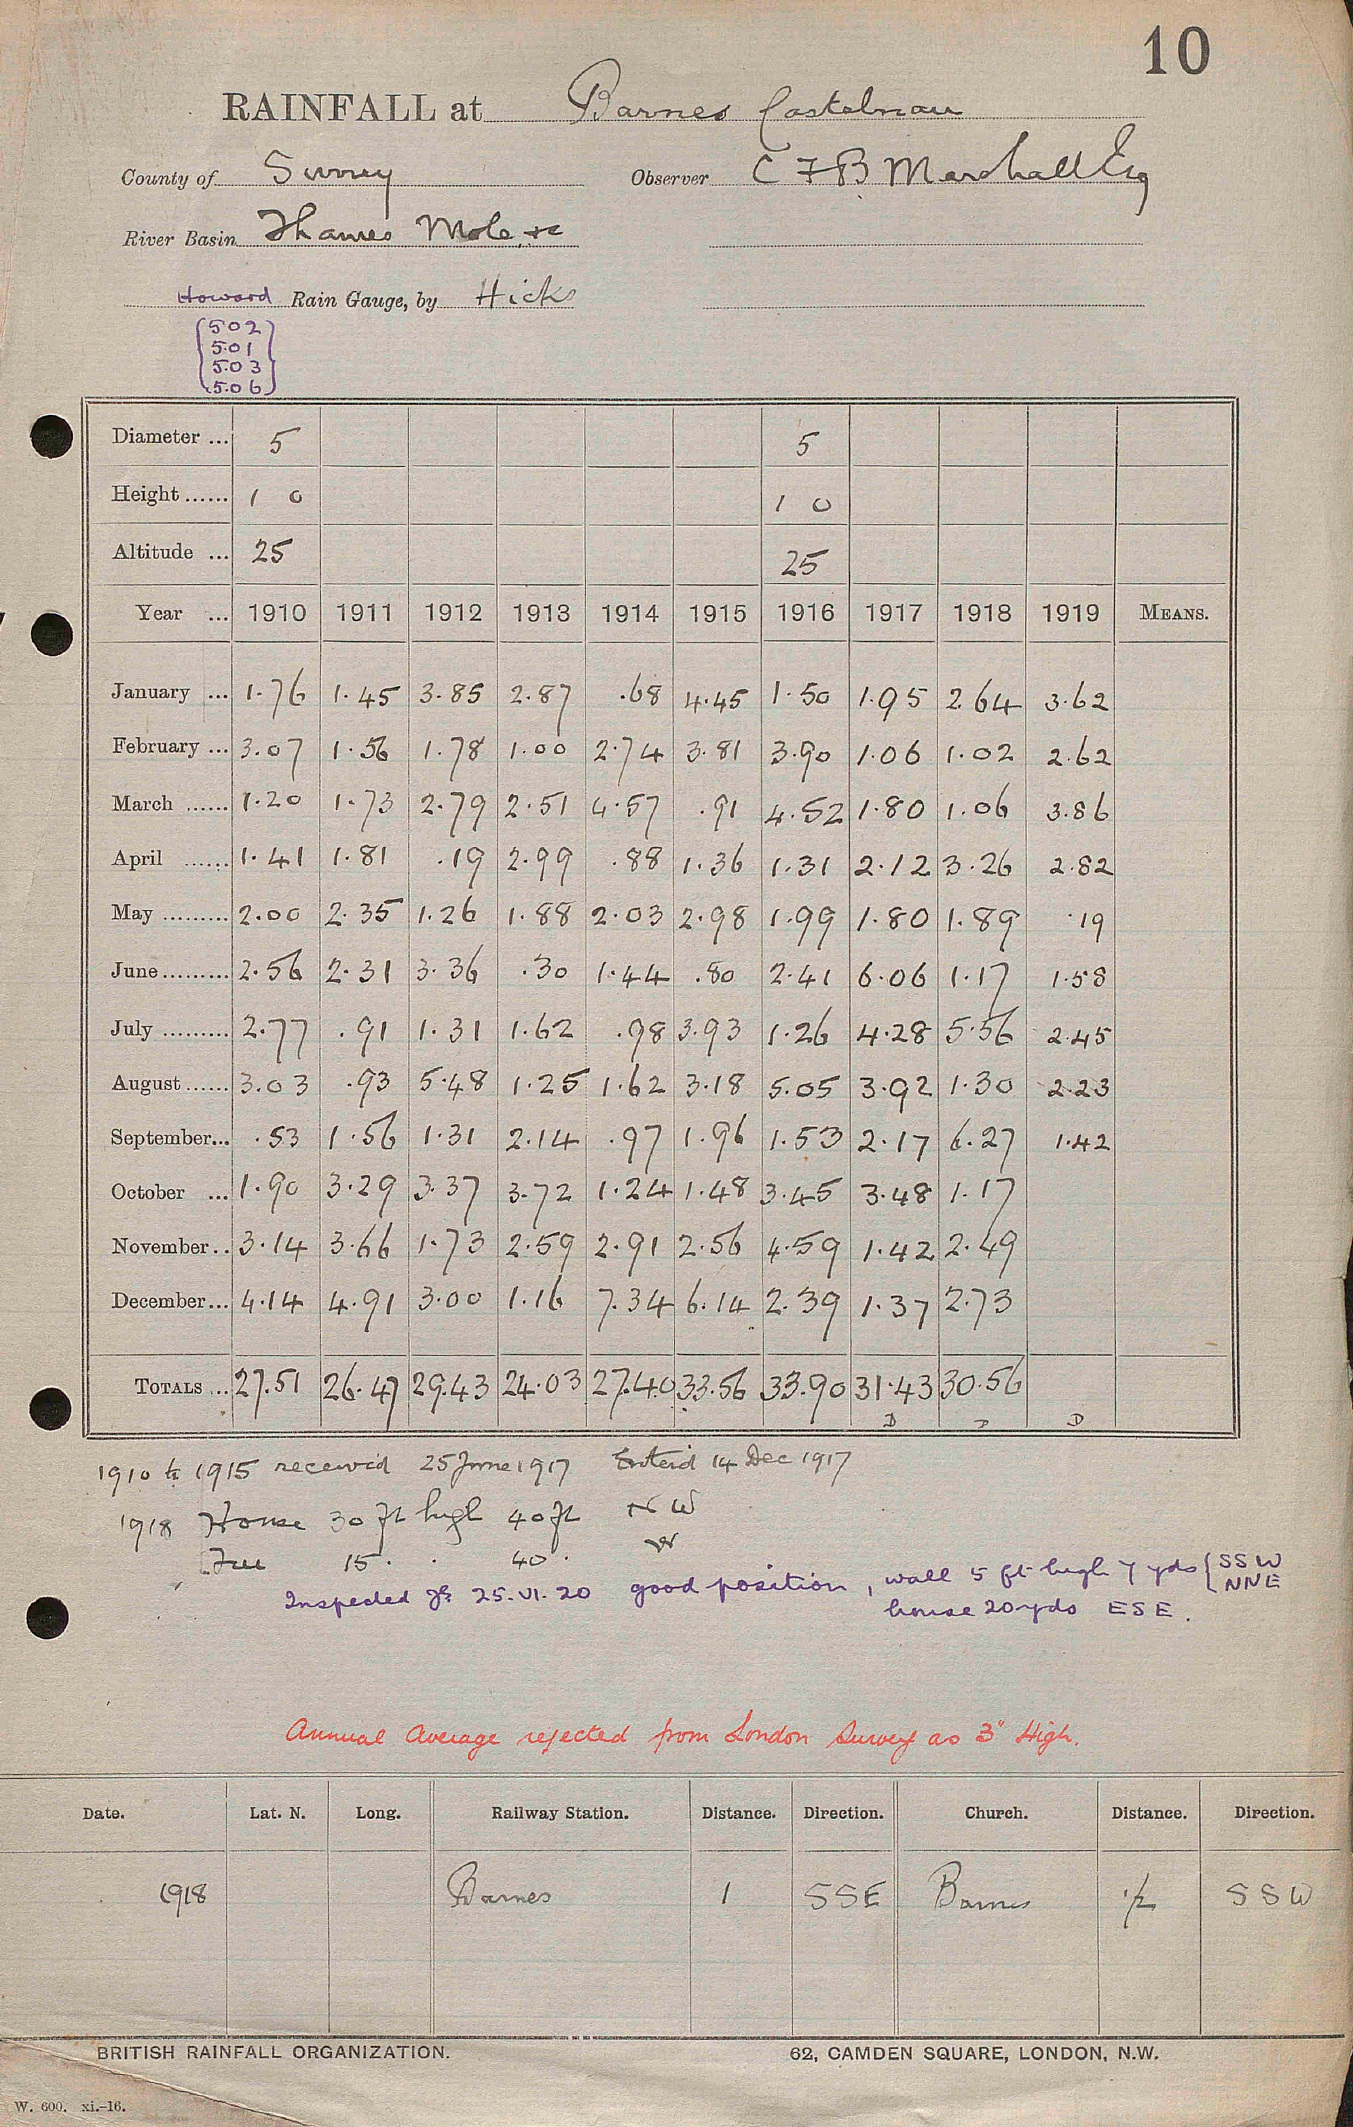 10
RAINFALL at Barnes Castelnau
County of Surrey Observer C F B Marshall Esq
River Basin Thames Mole &c
Howard Rain Gauge, by Hicks
5.02
5.01
5.03
5.06
Diameter ... 5 5
Height ...... 1 0 1 0
Altitude ... 25 25
Year ... 1910 1911 1912 1913 1914 1915 1916 1917 1918 1919 MEANS.
January ... 1.76 1.45 3.85 2.87 .68 4.45 1.50 1.95 2.64 3.62
February ... 3.07 1.56 1.78 1.00 2.74 3.81 3.90 1.06 1.02 2.62
March ...... 1.20 1.73 2.79 2.51 4.57 .91 4.52 1.80 1.06 3.86
April ...... 1.41 1.81 .19 2.99 .88 1.36 1.31 2.12 3.26 2.82
May ......... 2.00 2.35 1.26 1.88 2.03 2.98 1.99 1.80 1.89 .19
June ......... 2.56 2.31 3.36 .30 1.44 .80 2.41 6.06 1.17 1.58
July ......... 2.77 .91 1.31 1.62 .98 3.93 1.26 4.28 5.56 2.45
August ...... 3.03 .93 5.48 1.25 1.62 3.18 5.05 3.92 1.30 2.23
September... .53 1.56 1.31 2.14 .97 1.96 1.53 2.17 6.27 1.42
October ... 1.90 3.29 3.37 3.72 1.24 1.48 3.45 3.48 1.17
November .. 3.14 3.66 1.73 2.59 2.91 2.56 4.59 1.42 2.49
December... 4.14 4.91 3.00 1.16 7.34 6.14 2.39 1.37 2.73
TOTALS ... 27.51 26.47 29.43 24.03 27.40 33.56 33.90 31.43 30.56
D D D
1910 to 1915 received 25 June 1917 Enterd 14 Dec 1917
1918 House 30 ft high 40 ft N W
Tree 15 . . 40 . W
Inspected 25.VI.20 good position, wall 5 ft high 7 yds { SSW
NNE
house 20 yds ESE.
Annual Average rejected from London Survey as 3" High.
Date. Lat. N. Long. Railway Station. Distance. Direction. Church. Distance. Direction.
1918 Barnes 1 SSE Barnes 1/2 SSW
BRITISH RAINFALL ORGANIZATION. 62, CAMDEN SQUARE, LONDON, N.W.
W. 600. xi.-16.